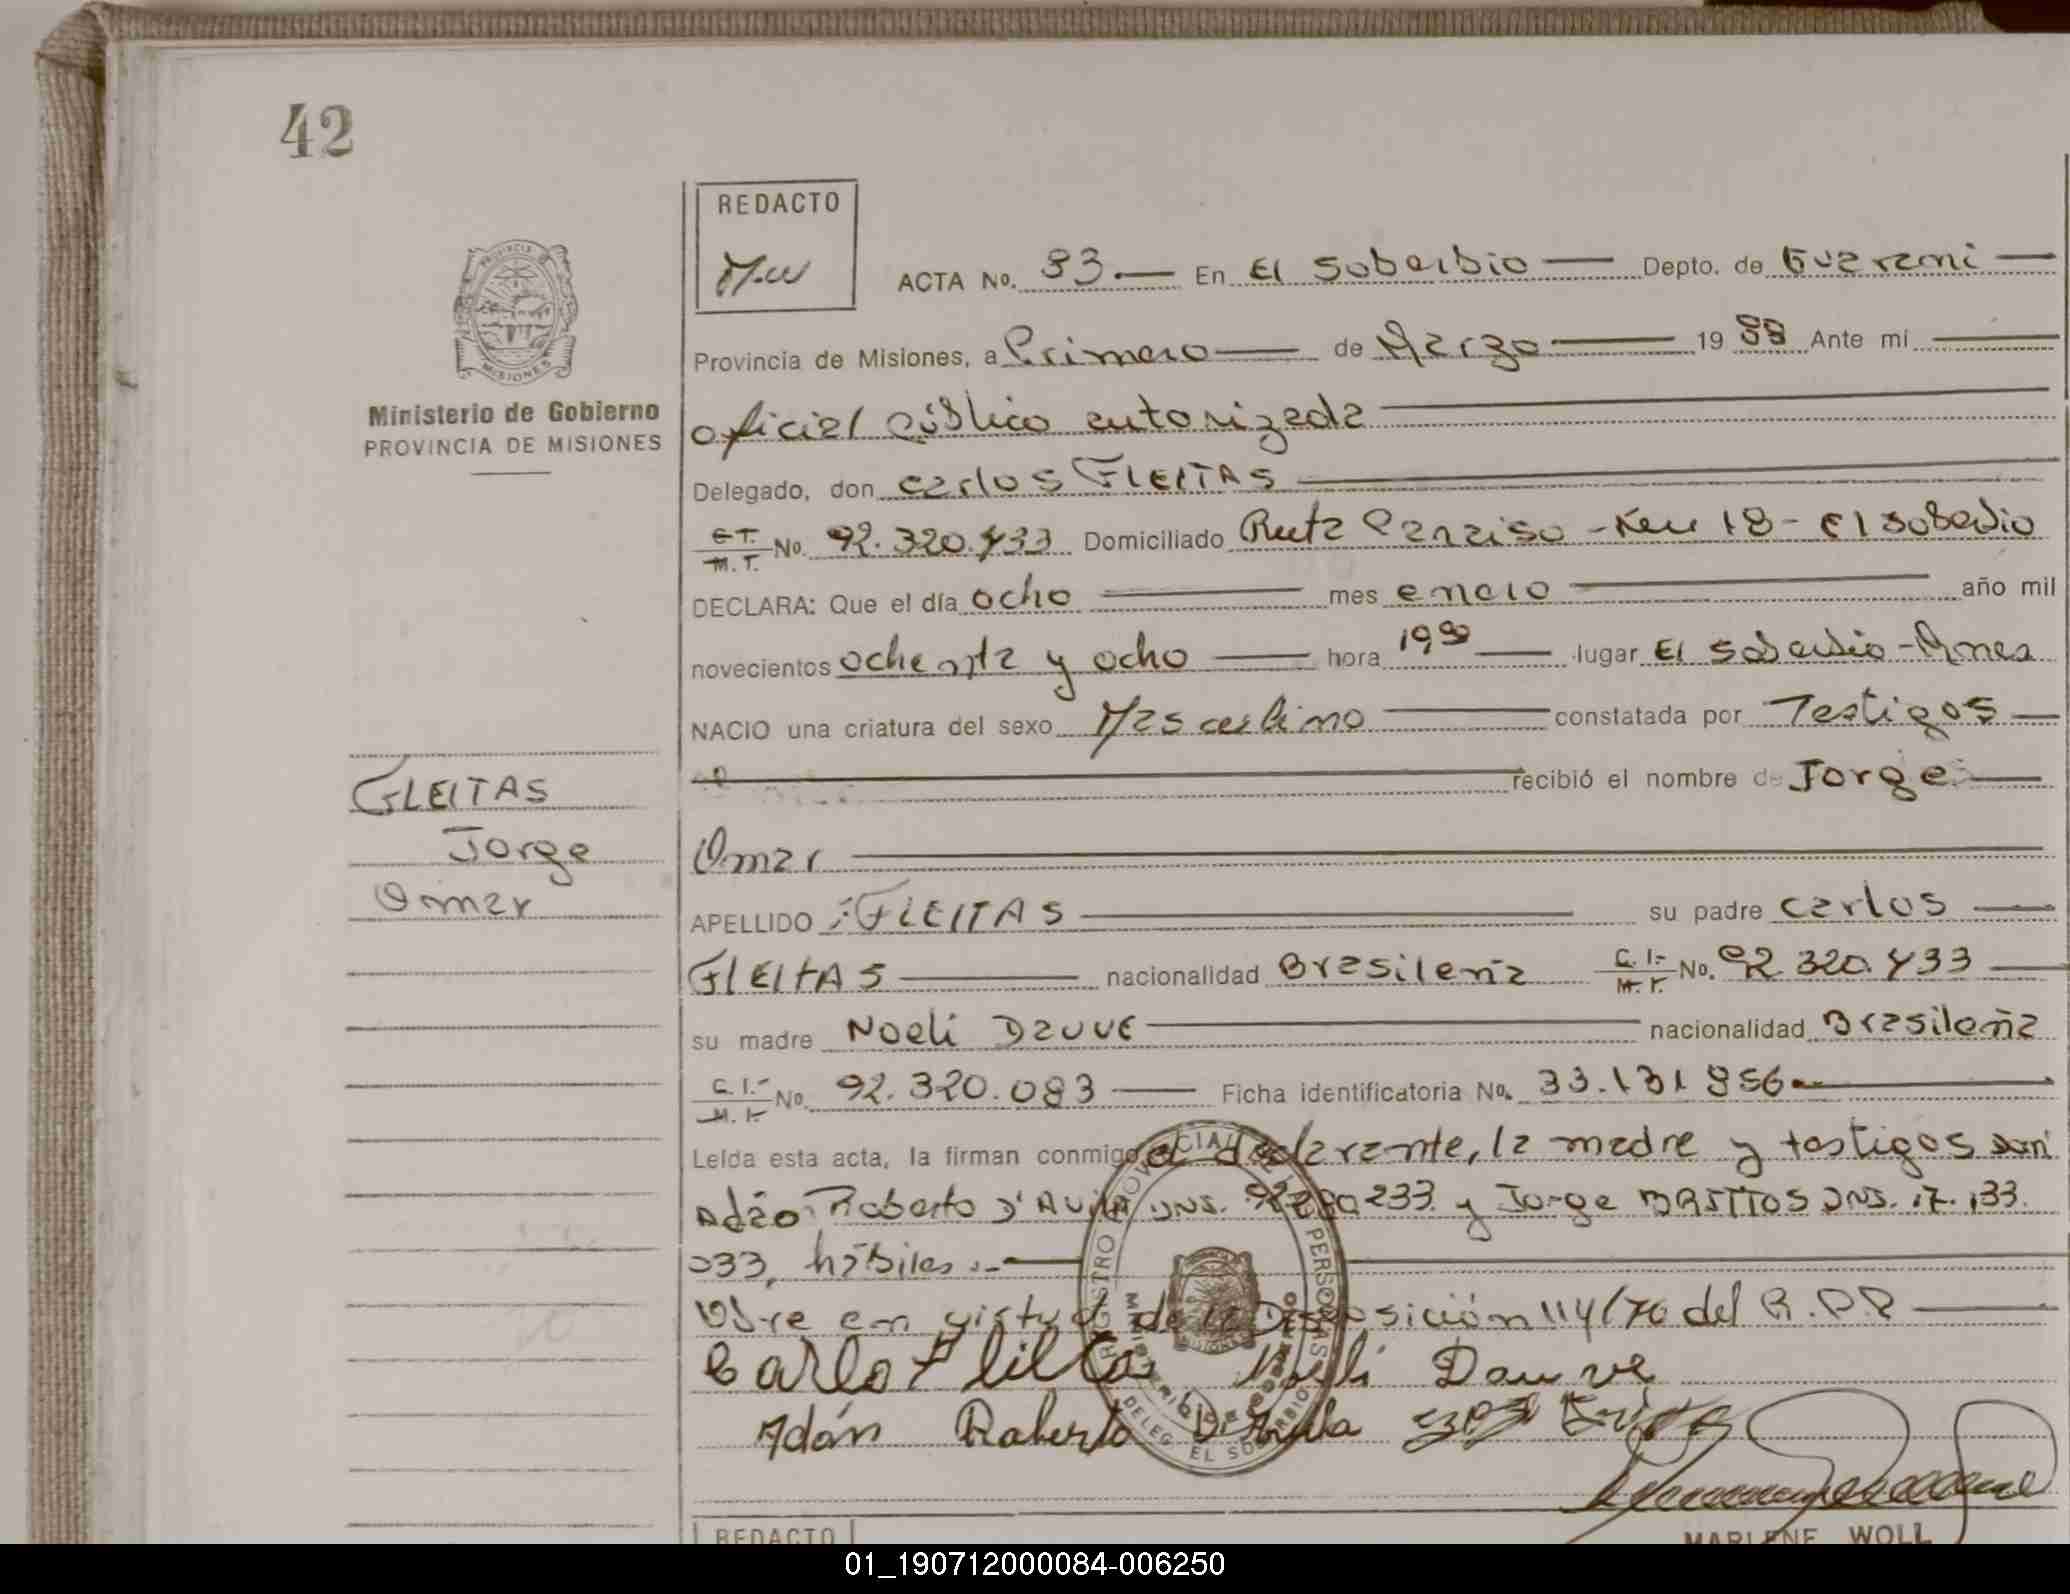 42
REDACTO
M.W
ACTA No. 83.— En El Soberbio — Depto. de Guarani —
Provincia de Misiones, a Primero — de Marzo — 1988 Ante mi —
Ministerio de Gobierno
PROVINCIA DE MISIONES
oficial público autorizada
Delegado, don Carlos FLEITAS
No. 92.320.433 Domiciliado Ruta Paraiso - Km 18 - El Soberbio
DECLARA: Que el día ocho — mes enero — año mil
novecientos ochenta y ocho — hora 19 — lugar El Soberbio - Mnes
NACIO una criatura del sexo Masculino — constatada por Testigos —
recibió el nombre de Jorge —
FLEITAS
Jorge
Omar
Omar
APELLIDO FLEITAS — su padre Carlos —
FLEITAS — nacionalidad Brasileña C. I. M. I. No. 92.320.433 —
su madre Noeli DAUVE — nacionalidad Brasileña
C. I. M. I. No. 92.320.083 — Ficha identificatoria No. 33.131.856.—
Leída esta acta, la firman conmigo el declarante, la madre y testigos son:
Adão Roberto D'AVILA DNI. 233 y Jorge BASTTOS DNI. 17.133.
033, hábiles.—
Obre en virtud de la Disposición 114/76 del R.P.P —
Carlo Fleitas Noeli Dauve
Adán Roberto D'Avila
REGISTRO PROVINCIAL DE LAS PERSONAS
MINISTERIO DE GOBIERNO
DELEG. EL SOBERBIO
MARLENE WOLL
REDACTO
01_190712000084-006250